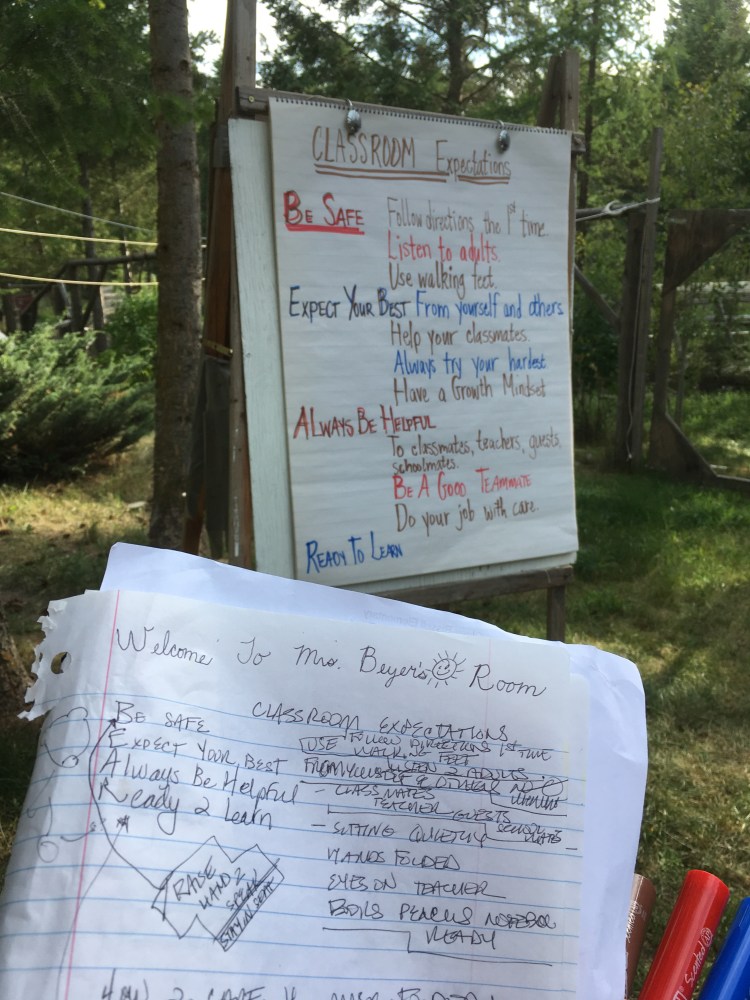 CLASSROOM Expectations
BE SAFE Follow directions the 1st time.
Listen to adults.
Use walking feet.
EXPECT YOUR BEST From yourself and others.
Help your classmates.
Always try your hardest.
Have a Growth Mindset
ALWAYS BE HELPFUL
To classmates, teachers, guests,
schoolmates.
BE A GOOD TEAMMATE
Do your job with care.
READY TO LEARN
Welcome To Mrs. Beyer's Room
CLASSROOM EXPECTATIONS
BE SAFE
EXPECT YOUR BEST
Always Be Helpful
Ready 2 Learn
FOLLOW DIRECTIONS 1st TIME
USE WALKING FEET
LISTEN 2 ADULTS
FROM YOURSELF & OTHERS
- CLASSMATES
TEACHER GUESTS
- SITTING QUIETLY
HANDS FOLDED
EYES ON TEACHER
READY
HAND 2
SPEAK
STAY IN SEAT
Scented